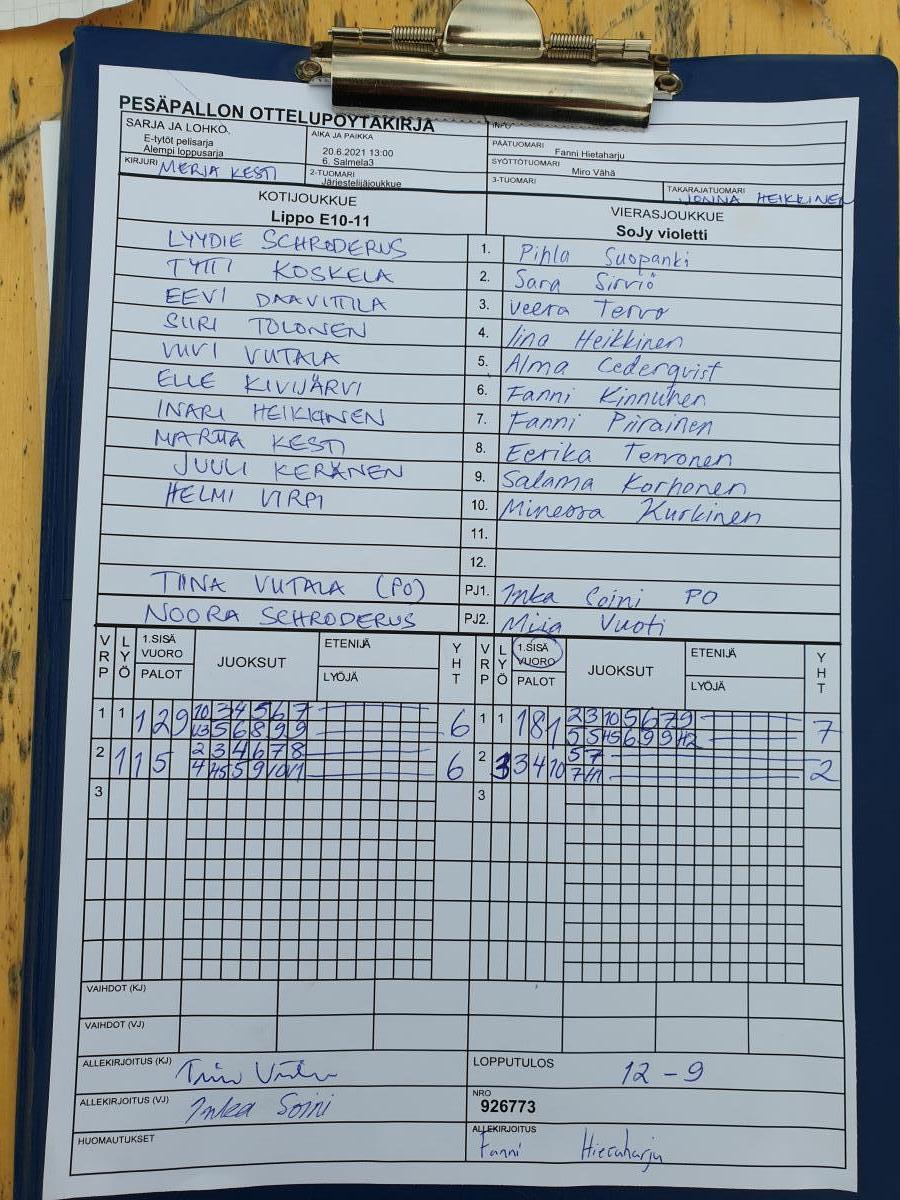 PESÄPALLON OTTELUPÖYTÄKIRJA
SARJA JA LOHKO,
E-tytöt pelisarja
Alempi loppusarja
KIRJURI MERJA KESTI
AIKA JA PAIKKA
20.6.2021 13:00
6. Salmela3
2-TUOMARI
Järjestelijäjoukkue
INFO
PÄÄTUOMARI Fanni Hietaharju
SYÖTTÖTUOMARI Miro Vähä
3-TUOMARI
TAKARAJATUOMARI
JONNA HEIKKINEN
KOTIJOUKKUE VIERASJOUKKUE
Lippo E10-11 SoJy violetti
LYYDIE SCHRODERUS 1. Pihla Suopanki
TYTTI KOSKELA 2. Sara Sirviö
EEVI DAAVITTILA 3. Veera Tervo
SIIRI TOLONEN 4. Iina Heikkinen
VUVI VUTALA 5. Alma Cederqvist
ELLE KIVIJÄRVI 6. Fanni Kinnunen
INARI HEIKKINEN 7. Fanni Piirainen
MARTTA KESTI 8. Eerika Tervonen
JUULI KERÄNEN 9. Salama Korhonen
HELMI VIRPI 10. Mineora Kurkinen
11.
12.
TIINA VUTALA (PO) PJ1. Inka Soini PO
NOORA SCHRODERUS PJ2. Miia Vuoti
VRP LYÖ 1.SISÄ VUORO PALOT JUOKSUT ETENIJÄ LYÖJÄ YHT VRP LYÖ 1.SISÄ VUORO PALOT JUOKSUT ETENIJÄ LYÖJÄ YHT
1 1 1 2 9 10 3 4 5 6 7 6 1 1 1 8 1 2 3 10 5 6 7 9 7
2 1 1 5 2 3 4 6 7 8 6 2 3 3 4 10 5 7 2
3 3
VAIHDOT (KJ)
VAIHDOT (VJ)
ALLEKIRJOITUS (KJ) LOPPUTULOS 12 - 9
ALLEKIRJOITUS (VJ) Inka Soini NRO
926773
HUOMAUTUKSET ALLEKIRJOITUS
Fanni Hietaharju